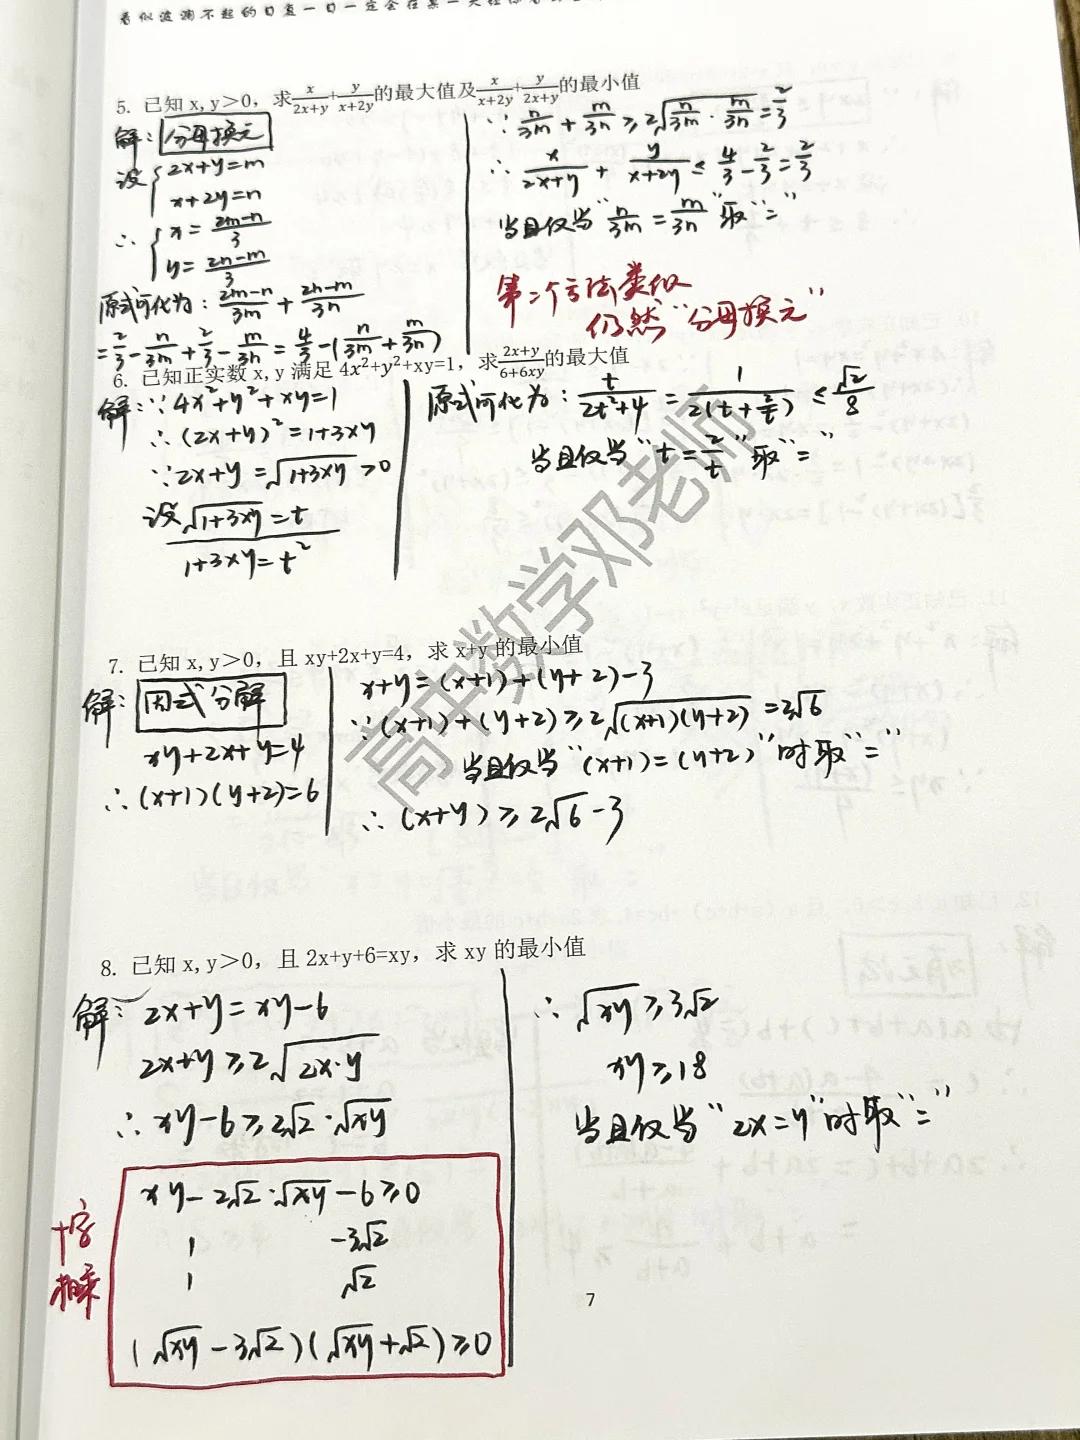 看似波澜不起的日复一日一定会在某一天
5. 已知 x, y＞0，求x/(2x+y)+y/(x+2y)的最大值及x/(x+2y)+y/(2x+y)的最小值
解：分母换元
设 { 2x+y=m
x+2y=n
∴ { x=(2m-n)/3
y=(2n-m)/3
原式可化为：(2m-n)/3m+(2n-m)/3n
=2/3-n/3m+2/3-m/3n=4/3-(n/3m+m/3n)
∵ n/3m+m/3n≥2√(n/3m·m/3n)=2/3
∴ x/(2x+y)+y/(x+2y)≤4/3-2/3=2/3
当且仅当“n/3m=m/3n”取“=”
第二个方法类似
仍然“分母换元”
6. 已知正实数 x, y 满足 4x²+y²+xy=1，求(2x+y)/(6+6xy)的最大值
解：∵4x²+y²+xy=1
∴(2x+y)²=1+3xy
∵2x+y=√(1+3xy)>0
设√(1+3xy)=t
1+3xy=t²
原式可化为：t/(2t²+4)=1/(2(t+2/t))≤√2/8
当且仅当“t=2/t”取“=”
7. 已知 x, y＞0，且 xy+2x+y=4，求 x+y 的最小值
解：因式分解
xy+2x+y=4
∴(x+1)(y+2)=6
x+y=(x+1)+(y+2)-3
∵(x+1)+(y+2)≥2√((x+1)(y+2))=2√6
当且仅当“(x+1)=(y+2)”时取“=”
∴(x+y)≥2√6-3
8. 已知 x, y＞0，且 2x+y+6=xy，求 xy 的最小值
解：2x+y=xy-6
2x+y≥2√(2x·y)
∴xy-6≥2√2·√xy
十字相乘
xy-2√2·√xy-6≥0
1 -3√2
1 √2
(√xy-3√2)(√xy+√2)≥0
∴√xy≥3√2
xy≥18
当且仅当“2x=y”时取“=”
7
高中数学邓老师